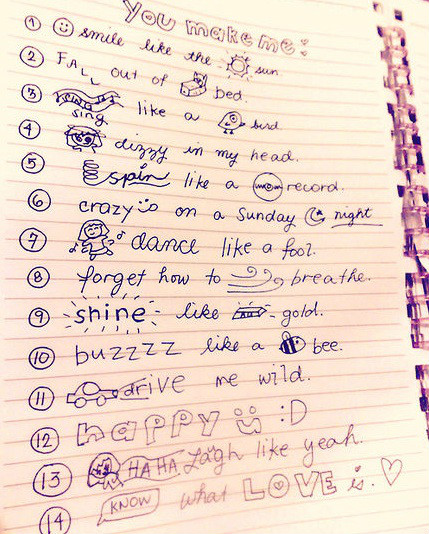 You make me:
1 smile like the sun.
2 FALL out of bed.
3 sing like a bird
4 dizzy in my head.
5 spin like a record.
6 crazy on a Sunday night
7 dance like a fool.
8 forget how to breathe.
9 shine like gold.
10 buzzzz like a bee.
11 drive me wild.
12 happy :D
13 HAHA Laugh like yeah.
14 KNOW what LOVE is.